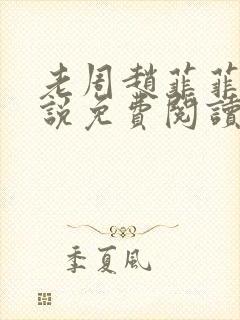 老周趙菲菲
說免費閱讀
季夏風